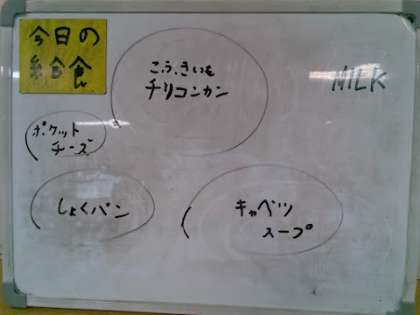 今日の
給食
こう、きいも
チリコンカン
MILK
ポケット
チーズ
しょくパン
キャベツ
スープ